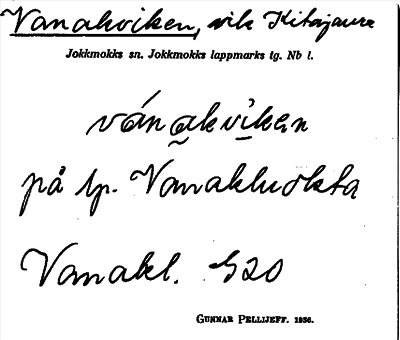 Vanakviken, vik Kitajaure
Jokkmokks sn. Jokkmokks lappmarks tg. Nb l.
vánakvikən
på lp. Vanakluokta
Vanakl. G20
GUNNAR PELLIJEFF. 1936.